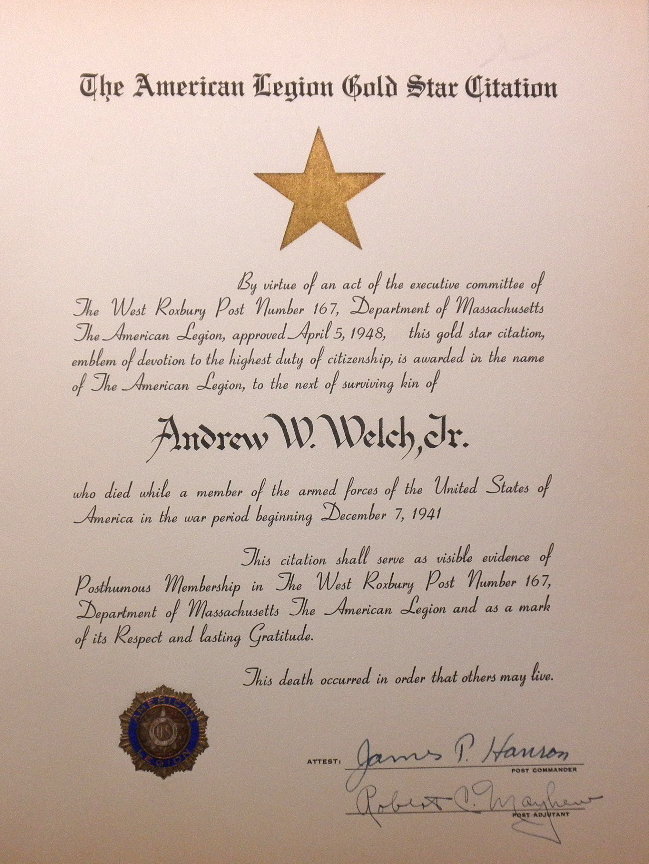 The American Legion Gold Star Citation
By virtue of an act of the executive committee of
The West Roxbury Post Number 167, Department of Massachusetts
The American Legion, approved April 5, 1948, this gold star citation,
emblem of devotion to the highest duty of citizenship, is awarded in the name
of The American Legion, to the next of surviving kin of
Andrew W. Welch, Jr.
who died while a member of the armed forces of the United States of
America in the war period beginning December 7, 1941
This citation shall serve as visible evidence of
Posthumous Membership in The West Roxbury Post Number 167,
Department of Massachusetts The American Legion and as a mark
of its Respect and lasting Gratitude.
This death occurred in order that others may live.
AMERICAN
US
LEGION
ATTEST: James P. Hanson
POST COMMANDER
Robert C. Mayhew
POST ADJUTANT